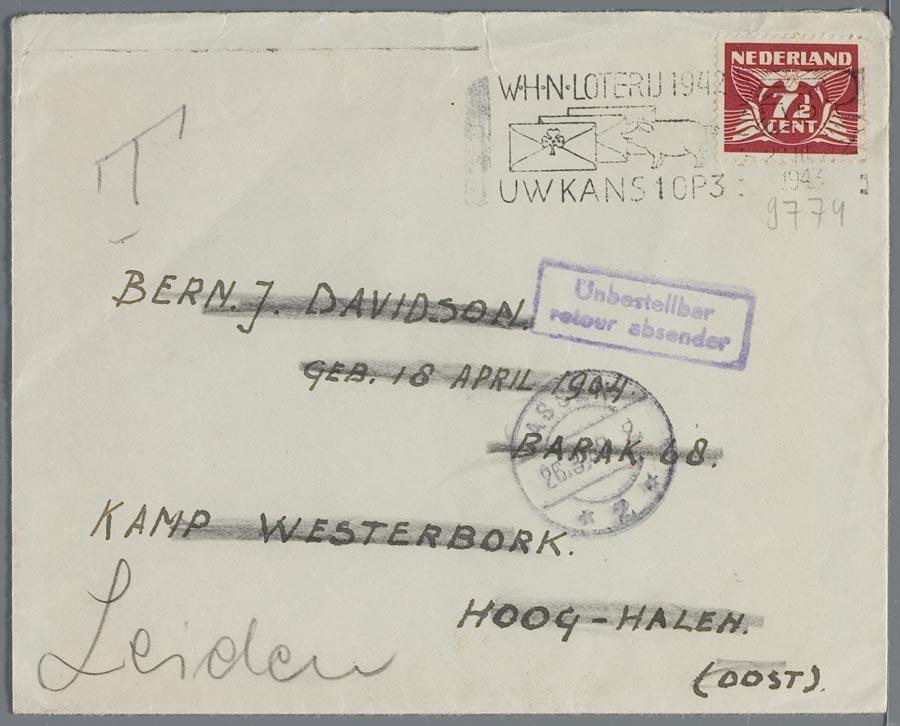 NEDERLAND
7½
CENT
W·H·N·LOTERIJ 1942
UW KANS 1 OP 3
1943
9774
BERN. J. DAVIDSON.
Unbestellbar
retour absender
GEB. 18 APRIL 1904.
BARAK. 68.
ASSEN
26.3
2
KAMP WESTERBORK.
HOOG-HALEN.
(OOST).
Leiden